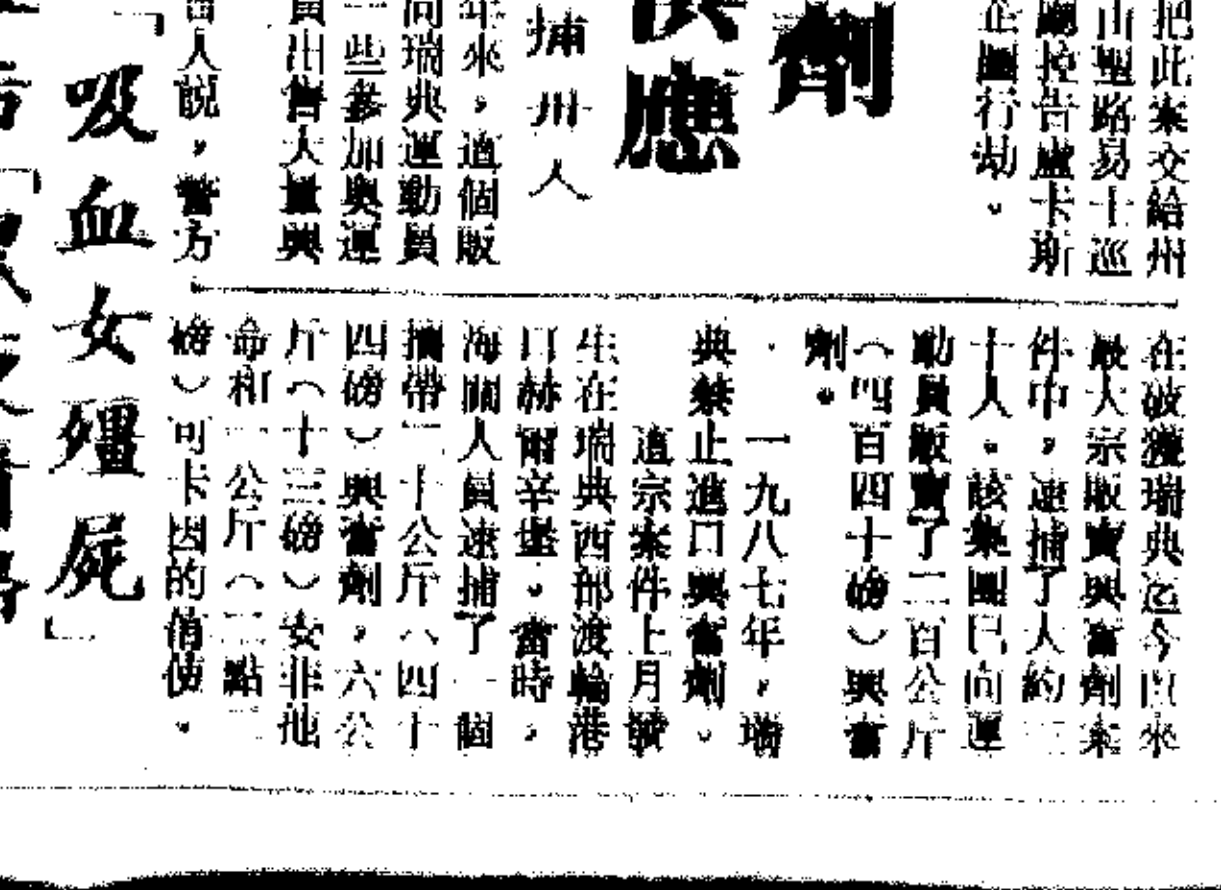 把此案交給州
山聖路易士巡
廳控告盧卡斯
企圖行劫。
劑
供應
捕卅人
年來，這個販
向瑞典運動員
一些參加奧運
賣出售大量興
人說，警方
在破獲瑞典迄今以來
最大宗販賣興奮劑案
件中，逮捕了人約三
十人。該集團已向運
動員販賣了二百公斤
（四百四十磅）興奮
劑。
一九八七年，瑞
典禁止進口興奮劑。
這宗案件上月發
生在瑞典西部渡輪港
口赫爾辛堡。當時，
海關人員逮捕了一個
攜帶二十公斤（四十
四磅）興奮劑，六公
斤（十三磅）安非他
命和一公斤（二點二
磅）可卡因的信使。
「吸血女殭屍」